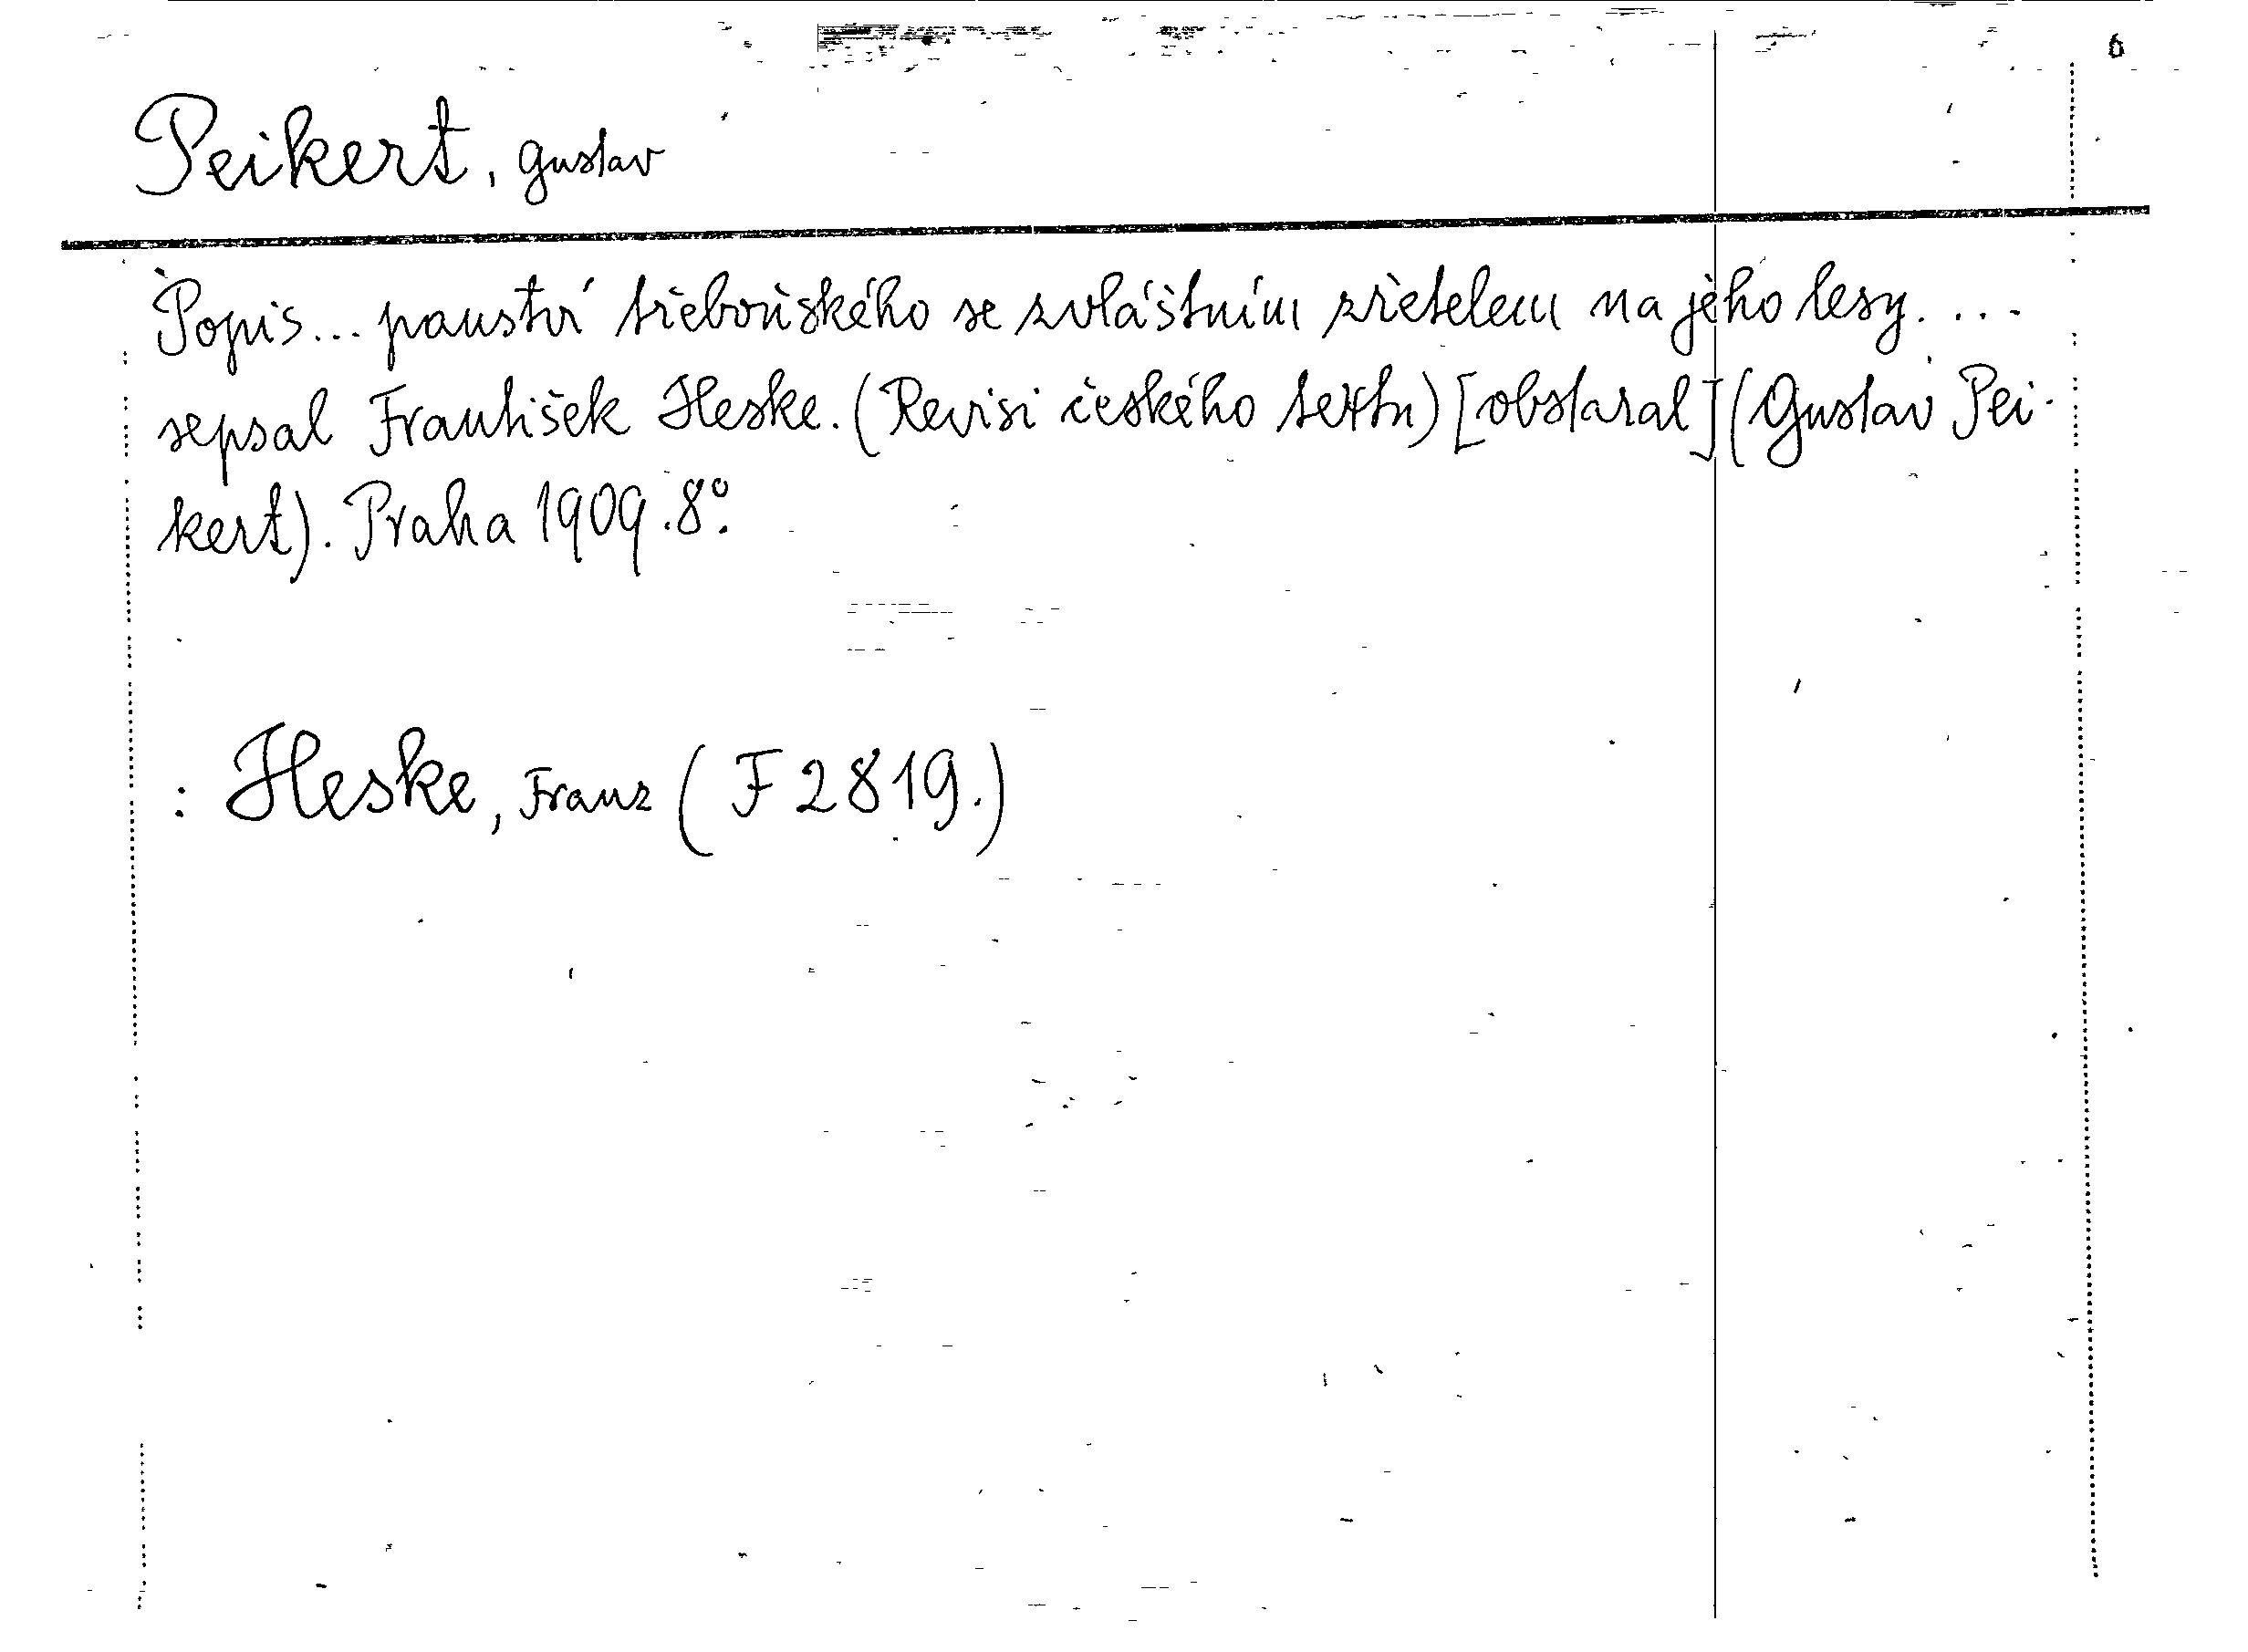 Peikert, Gustav
Popis... panství třeboňského se zvláštním zřetelem na jeho lesy....
sepsal František Heske. (Revisi českého textu) [obstaral] (Gustav Pei-
kert). Praha 1909. 8°.
: Heske, Franz (F 2819.)